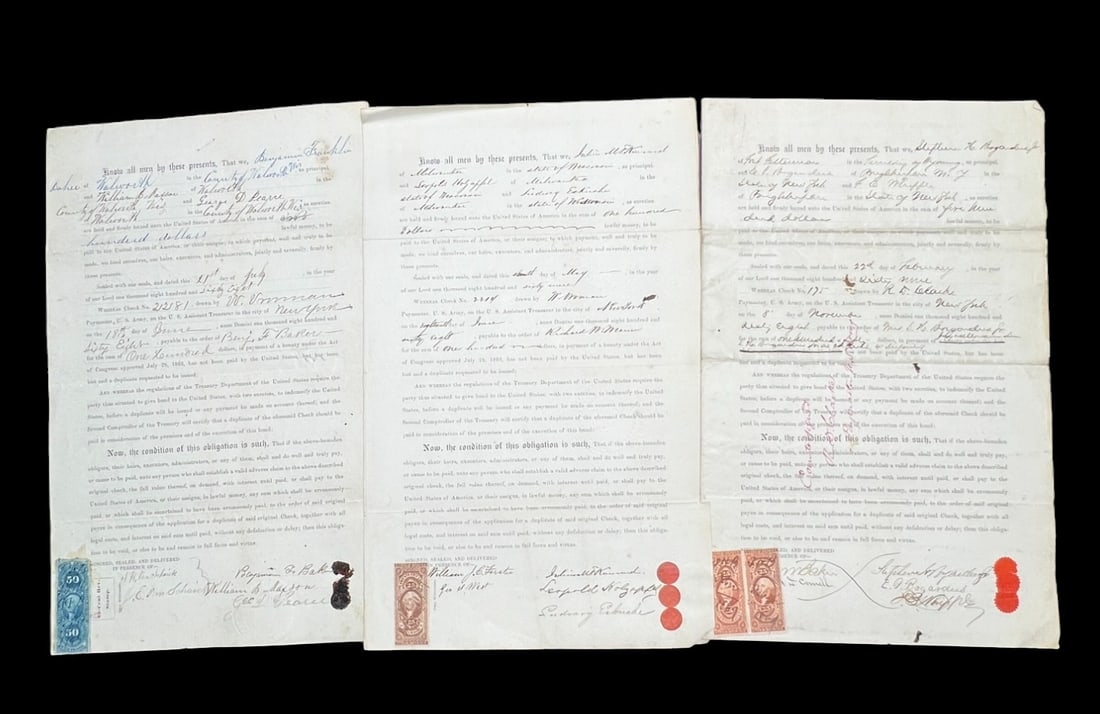 Know all men by these presents, That we, Benjamin Franklin
Baker of Walworth in the County of Walworth Wis, as principal,
and William of Walworth in the
County of Walworth Wis George D. Pearce
Walworth in the County of Walworth Wis, as sureties
are held and firmly bound unto the United States of America in the sum of
hundred dollars lawful money, to be
paid to the United States of America, or their assigns; to which payment, well and truly to be
made, we bind ourselves, our heirs, executors, and administrators, jointly and severally, firmly by
these presents.
Sealed with our seals, and dated this 21st day of July, in the year
of our Lord one thousand eight hundred and Sixty Eight
Whereas Check No. 212181, drawn by W.
Paymaster, U. S. Army, on the U. S. Assistant Treasurer in the city of New York
on the 18th day of June, Anno Domini one thousand eight hundred and
Sixty Eight, payable to the order of Benj. F Baker
for the sum of One Hundred dollars, in payment of a bounty under the Act
of Congress approved July 28, 1866, has not been paid by the United States, but has been lost
and a duplicate requested to be issued.
And whereas the regulations of the Treasury Department of the United States require the
party thus situated to give bond to the United States, with two sureties, to indemnify the United
States, before a duplicate will be issued or any payment be made on account thereof; and the
Second Comptroller of the Treasury will certify that a duplicate of the aforesaid Check should be
paid in consideration of the premises and of the execution of this bond:
Now, the condition of this obligation is such, That if the above-bounden
obligors, their heirs, executors, administrators, or any of them, shall and do well and truly pay,
or cause to be paid, unto any person who shall establish a valid adverse claim to the above described
original check, the full value thereof, on demand, with interest until paid, or shall pay to the
United States of America, or their assigns, in lawful money, any sum which shall be erroneously
paid, or which shall be ascertained to have been erroneously paid, to the order of said original
payee in consequence of the application for a duplicate of said original Check, together with all
legal costs, and interest on said sum until paid, without any defalcation or delay; then this obliga-
tion to be void, or else to be and remain in full force and virtue.
Signed, sealed, and delivered
in presence of—
50
50
Benjamin F Baker
William
Geo D Pearce
Know all men by these presents, That we, John McKinnd
of Milwaukee in the state of Wisconsin, as principal,
and Leopold Holzapfel of Milwaukee in the
state of Wisconsin Ludwig
Milwaukee in the state of Wisconsin, as sureties
are held and firmly bound unto the United States of America in the sum of one hundred
Dollars lawful money, to be
paid to the United States of America, or their assigns; to which payment, well and truly to be
made, we bind ourselves, our heirs, executors, and administrators, jointly and severally, firmly by
these presents.
Sealed with our seals, and dated this day of May, in the year
of our Lord one thousand eight hundred and sixty nine
Whereas Check No. drawn by W.
Paymaster, U. S. Army, on the U. S. Assistant Treasurer in the city of New York
on the day of June, Anno Domini one thousand eight hundred and
sixty eight, payable to the order of Richard
for the sum of one hundred dollars, in payment of a bounty under the Act
of Congress approved July 28, 1866, has not been paid by the United States, but has been lost
and a duplicate requested to be issued.
And whereas the regulations of the Treasury Department of the United States require the
party thus situated to give bond to the United States, with two sureties, to indemnify the United
States, before a duplicate will be issued or any payment be made on account thereof; and the
Second Comptroller of the Treasury will certify that a duplicate of the aforesaid Check should be
paid in consideration of the premises and of the execution of this bond:
Now, the condition of this obligation is such, That if the above-bounden
obligors, their heirs, executors, administrators, or any of them, shall and do well and truly pay,
or cause to be paid, unto any person who shall establish a valid adverse claim to the above described
original check, the full value thereof, on demand, with interest until paid, or shall pay to the
United States of America, or their assigns, in lawful money, any sum which shall be erroneously
paid, or which shall be ascertained to have been erroneously paid, to the order of said original
payee in consequence of the application for a duplicate of said original Check, together with all
legal costs, and interest on said sum until paid, without any defalcation or delay; then this obliga-
tion to be void, or else to be and remain in full force and virtue.
Signed, sealed, and delivered
in presence of—
William J.
Geo
Leopold Holzapfel
Ludwig
Know all men by these presents, That we, Stephen H Bogardus Jr
of in the Territory of Wyoming, as principal,
and E. A. Bogardus of Poughkeepsie N.Y in the
State of New York F. E.
of Poughkeepsie in the State of New York, as sureties
are held and firmly bound unto the United States of America in the sum of five hun
dred dollars lawful money, to be
paid to the United States of America, or their assigns; to which payment, well and truly to be
made, we bind ourselves, our heirs, executors, and administrators, jointly and severally, firmly by
these presents.
Sealed with our seals, and dated this 22d day of February, in the year
of our Lord one thousand eight hundred and Sixty nine
Whereas Check No. 175 drawn by R D Clarke
Paymaster, U. S. Army, on the U. S. Assistant Treasurer in the city of New York
on the 5 day of November, Anno Domini one thousand eight hundred and
sixty Eight, payable to the order of Mrs S H Bogardus Jr
for the sum of one hundred dollars, in payment of
has not been paid by the United States, but has been
and a duplicate requested to be issued.
And whereas the regulations of the Treasury Department of the United States require the
party thus situated to give bond to the United States, with two sureties, to indemnify the United
States, before a duplicate will be issued or any payment be made on account thereof; and the
Second Comptroller of the Treasury will certify that a duplicate of the aforesaid Check should be
paid in consideration of the premises and of the execution of this bond:
Now, the condition of this obligation is such, That if the above-bounden
obligors, their heirs, executors, administrators, or any of them, shall and do well and truly pay,
or cause to be paid, unto any person who shall establish a valid adverse claim to the above described
original check, the full value thereof, on demand, with interest until paid, or shall pay to the
United States of America, or their assigns, in lawful money, any sum which shall be erroneously
paid, or which shall be ascertained to have been erroneously paid, to the order of said original
payee in consequence of the application for a duplicate of said original Check, together with all
legal costs, and interest on said sum until paid, without any defalcation or delay; then this obliga-
tion to be void, or else to be and remain in full force and virtue.
Signed, sealed, and delivered
in presence of—
Stephen H Bogardus Jr
E. A. Bogardus